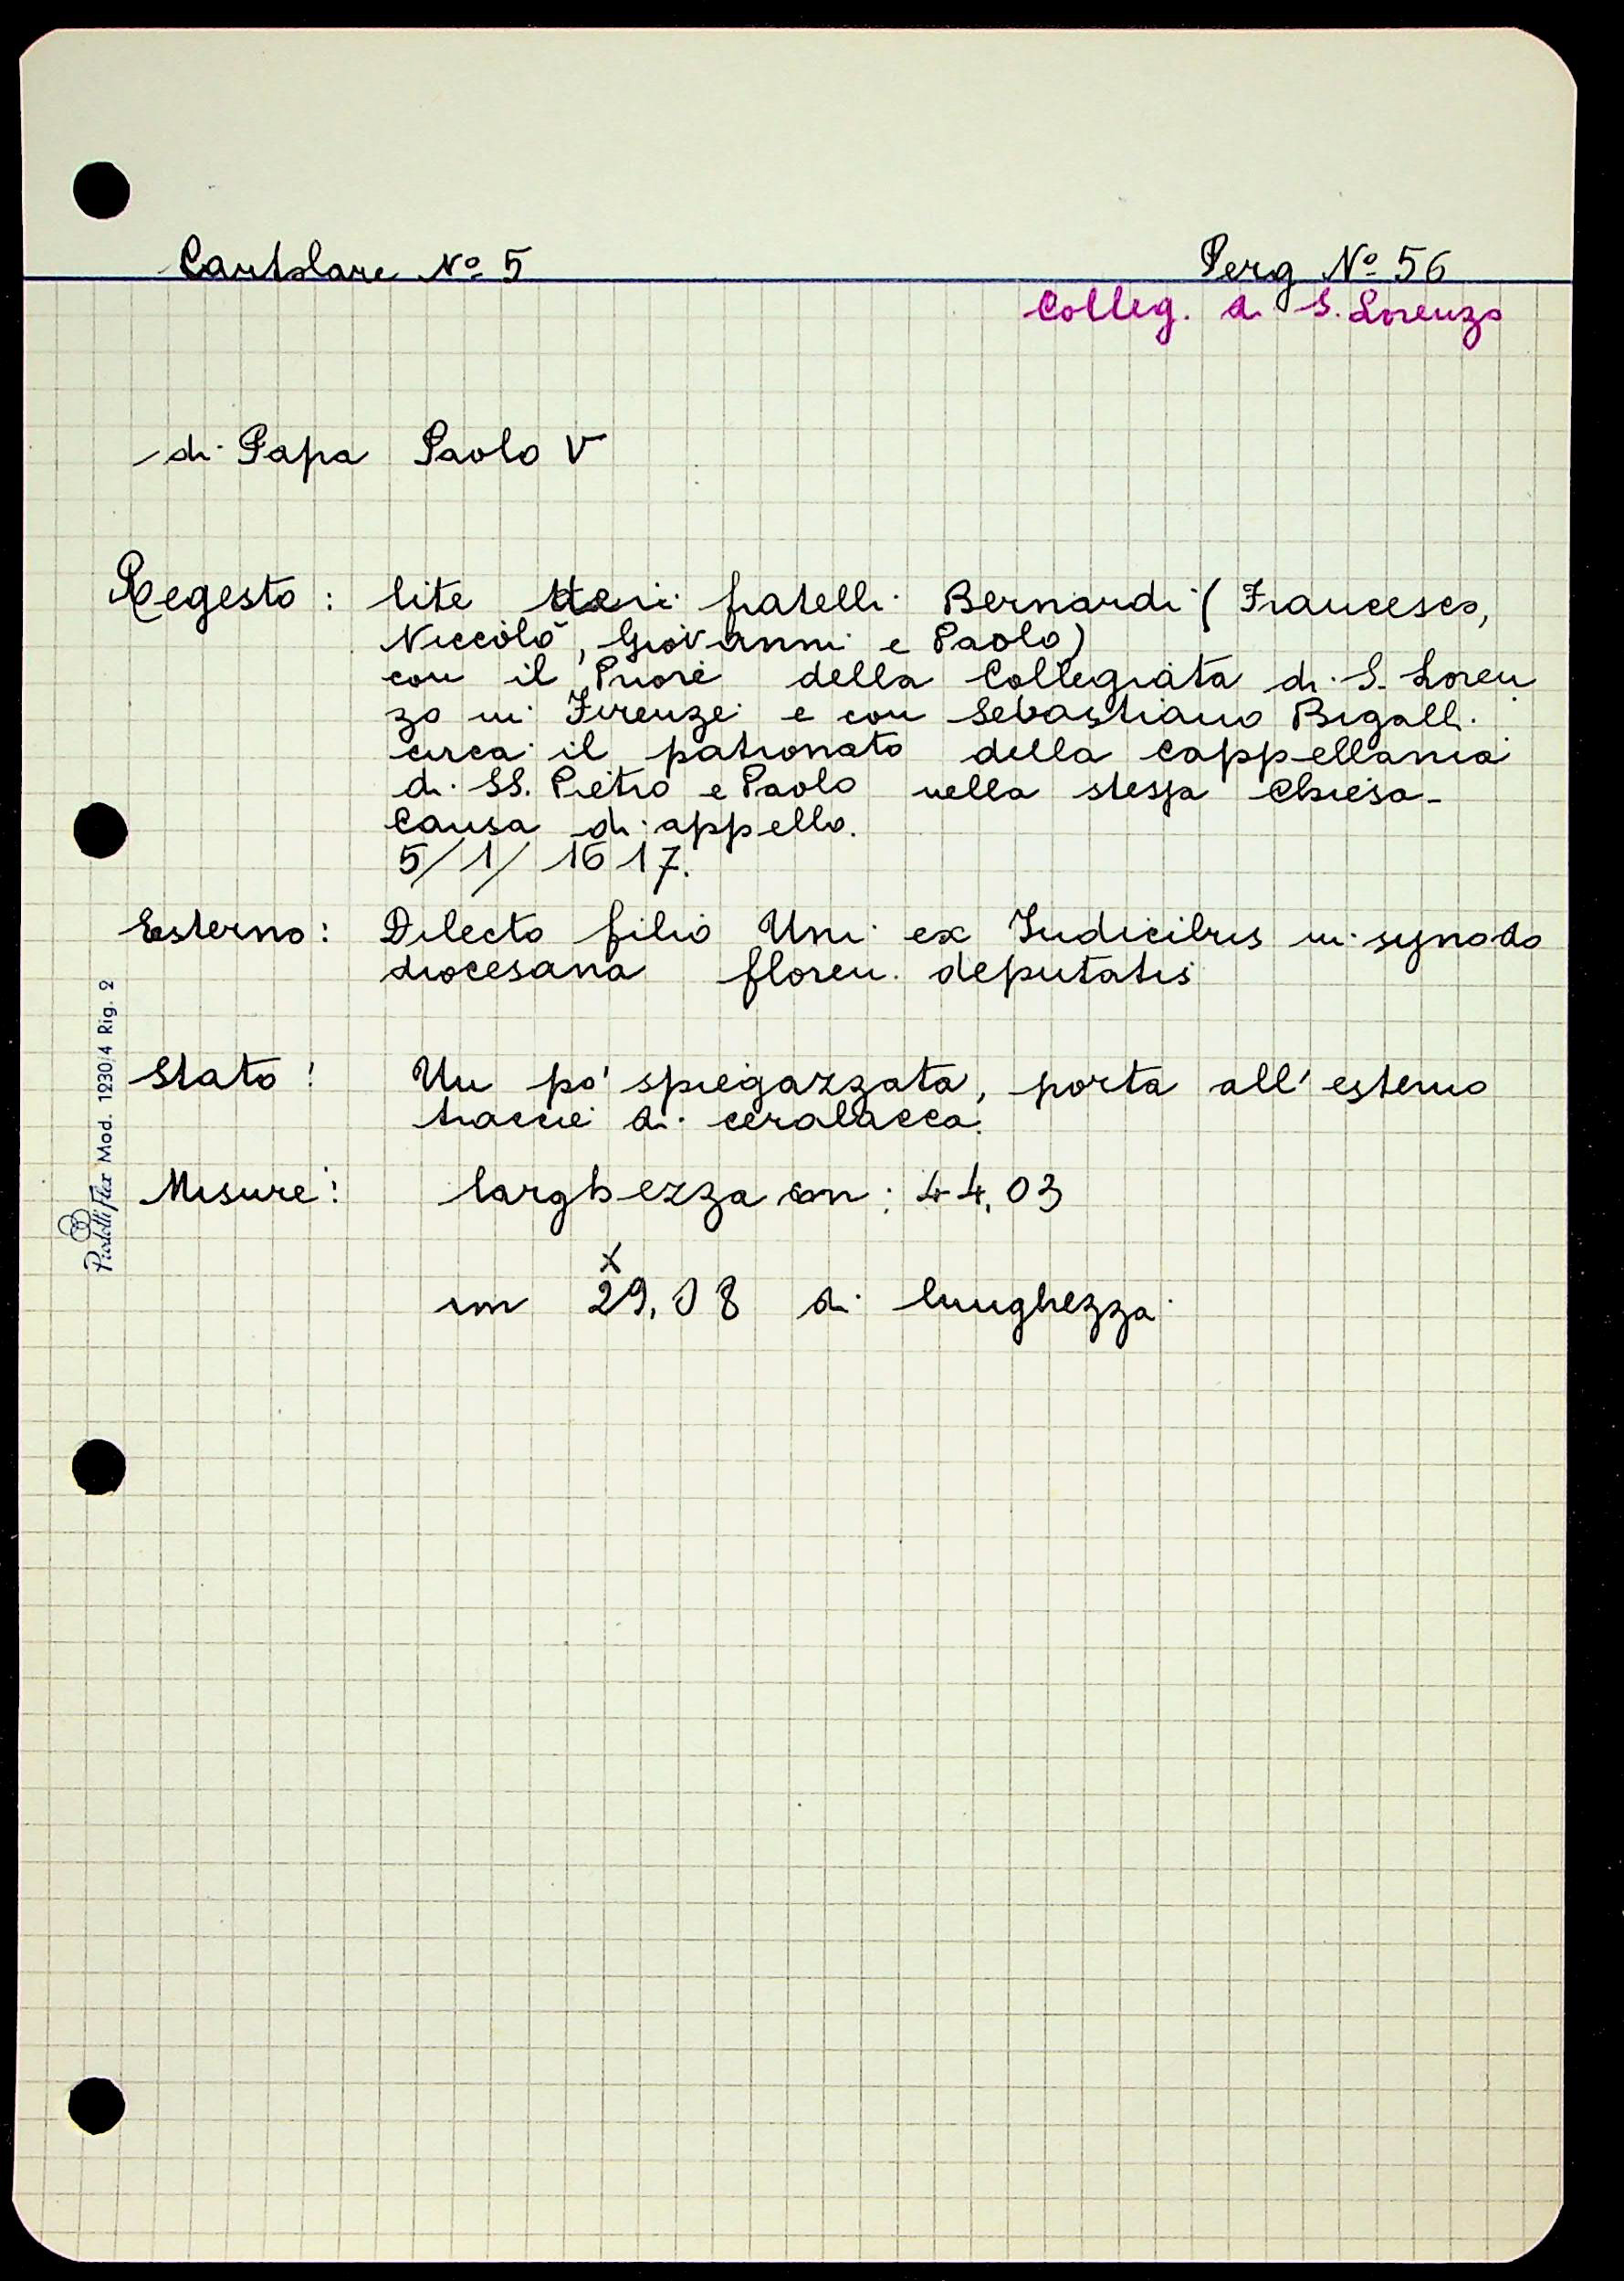 Cartolare Nº 5
Perg Nº 56
Colleg. di S. Lorenzo
di Papa Paolo V
Regesto: lite fratelli Bernardi (Francesco,
Niccolò, Giovanni e Paolo)
con il Priore della Collegiata di S. Loren
zo in Firenze e con Sebastiano Bigalli
circa il patronato della cappellania
di SS. Pietro e Paolo nella stessa Chiesa-
Causa di appello.
5/1/1617.
Esterno: Dilecto filio Uni ex Iudicibus in synodo
diocesana floren. deputatis
Stato: Un po' spiegazzata, porta all'esterno
traccie di ceralacca.
Misure: larghezza cm: 44,03
x
cm 29,08 di lunghezza
Pividelli Flex Mod. 1230/4 Rig. 2